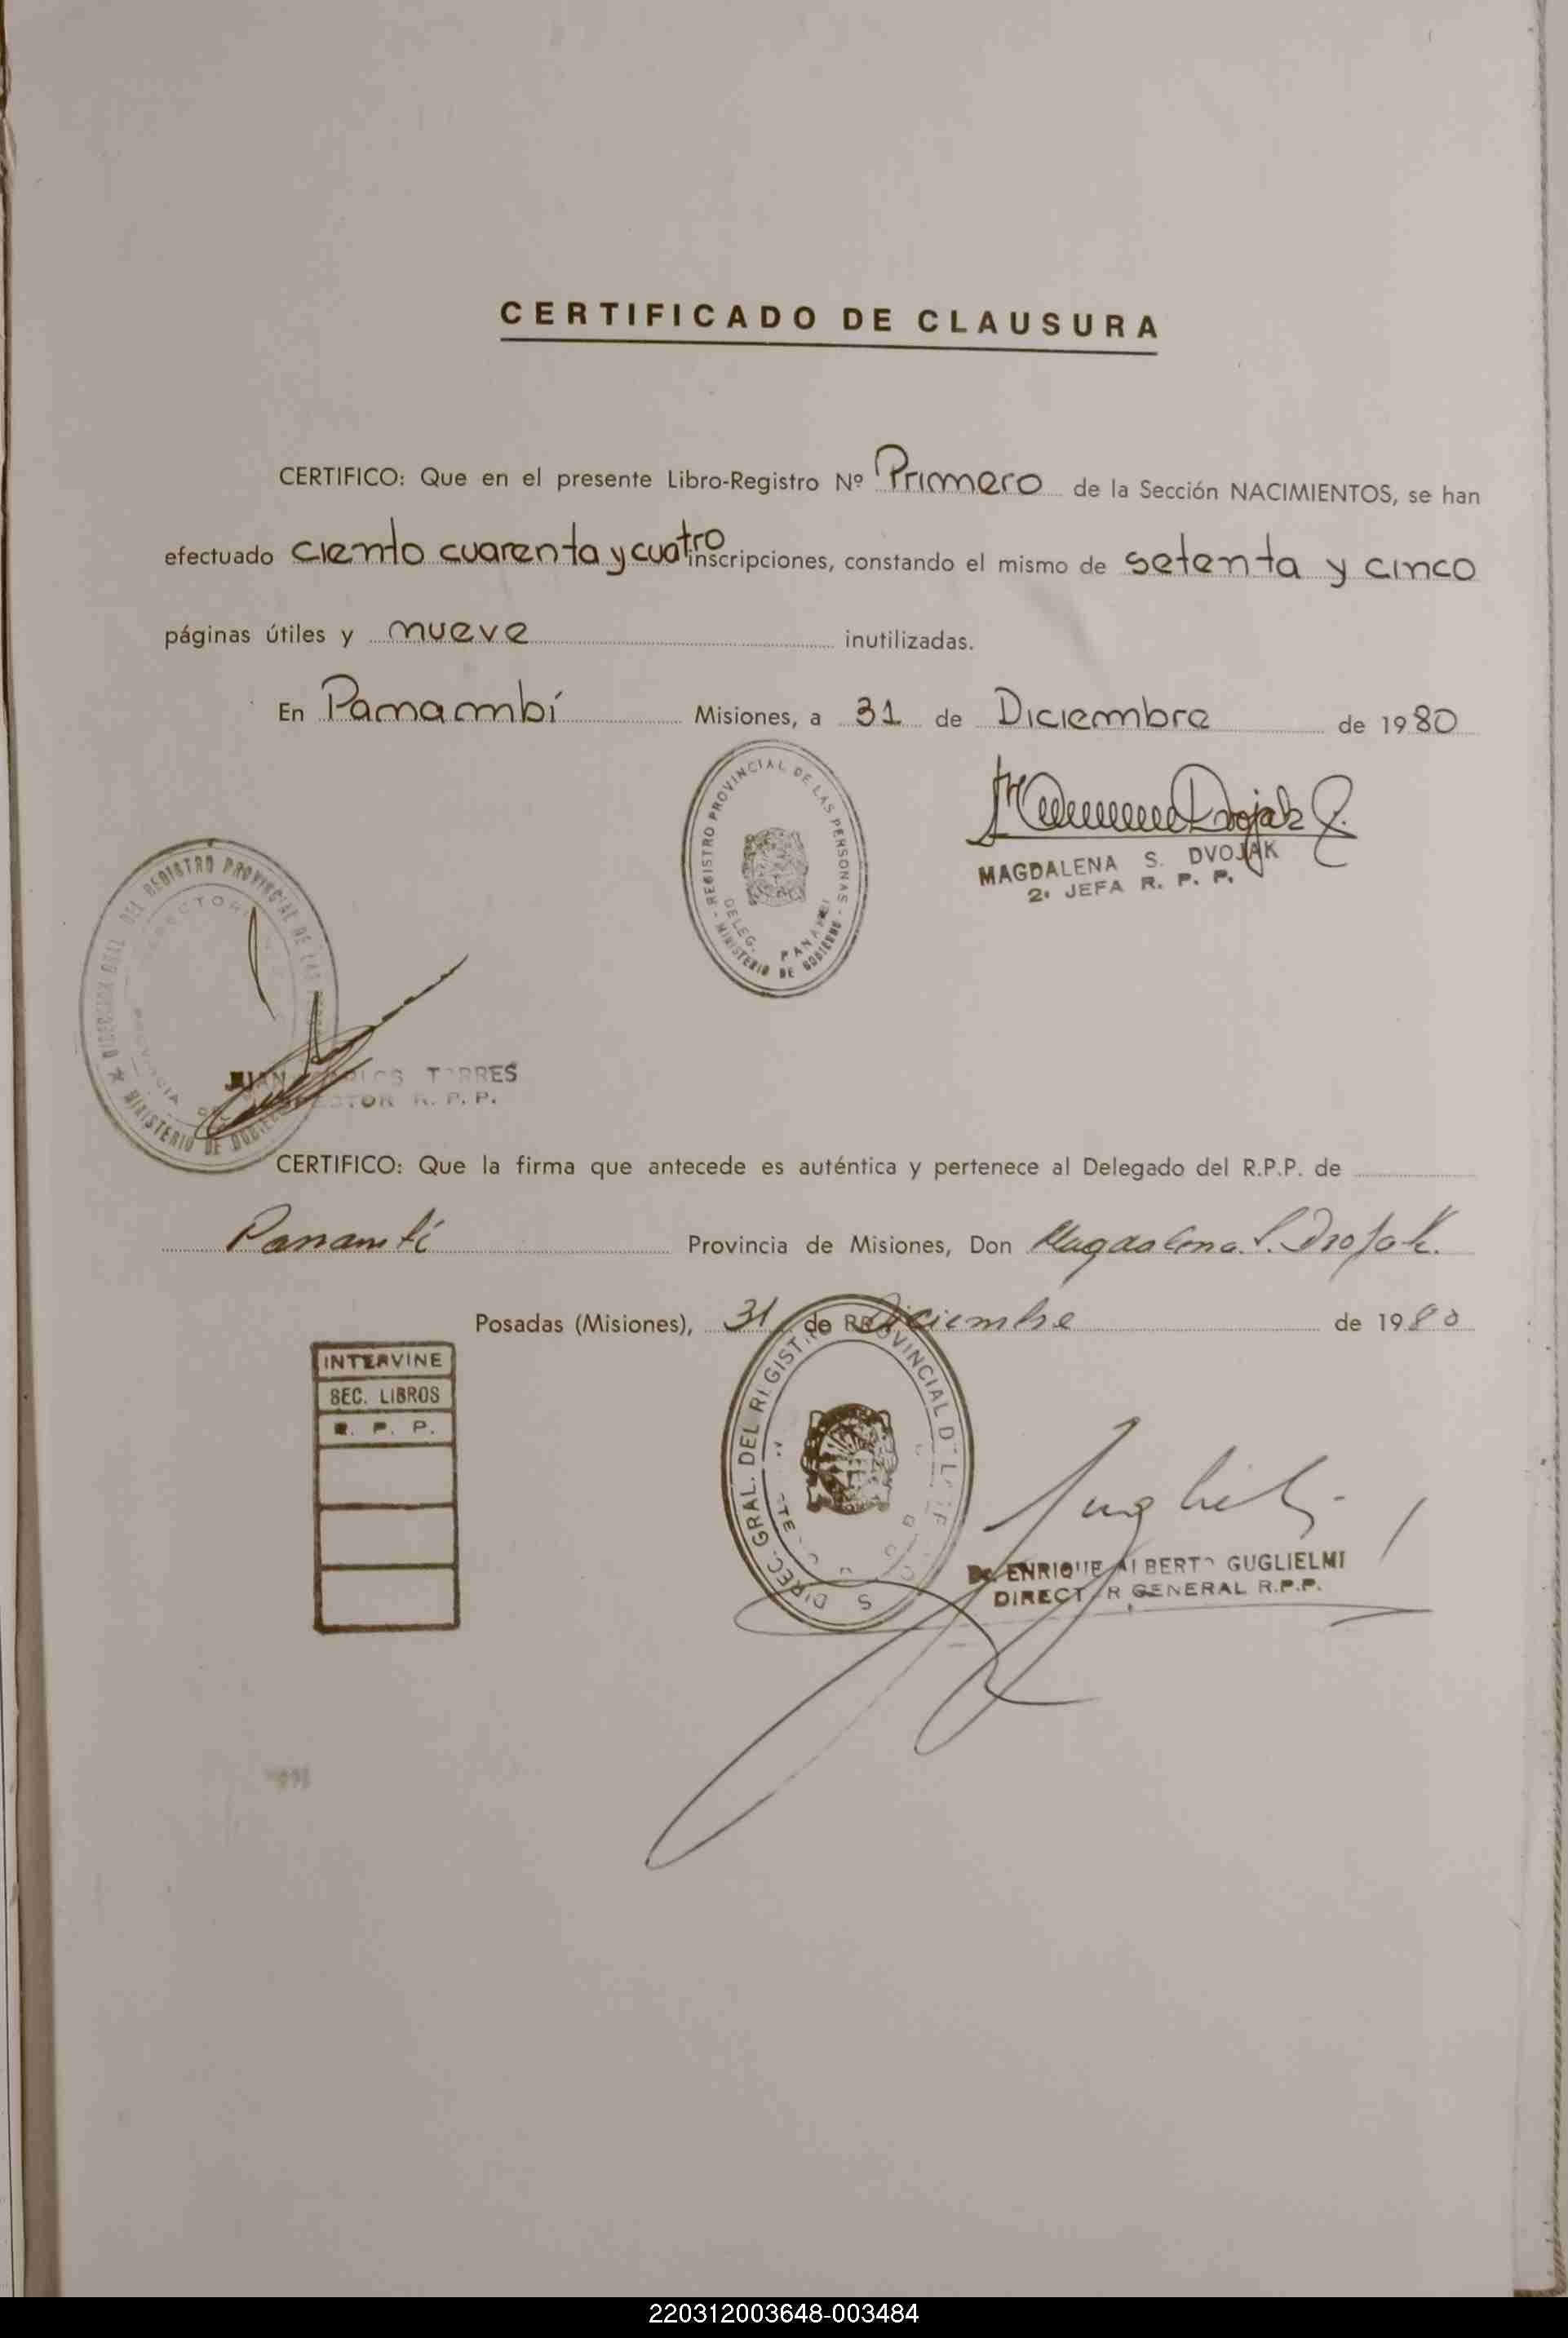 CERTIFICADO DE CLAUSURA
CERTIFICO: Que en el presente Libro-Registro Nº Primero de la Sección NACIMIENTOS, se han
efectuado ciento cuarenta y cuatro inscripciones, constando el mismo de setenta y cinco
páginas útiles y nueve inutilizadas.
En Panambí Misiones, a 31 de Diciembre de 1980
REGISTRO PROVINCIAL DE LAS PERSONAS - MINISTERIO DE GOBIERNO -
DELEG. PANAMBI
Dvojak
MAGDALENA S. DVOJAK
2ª JEFA R. P. P.
DIRECCION GRAL. DEL REGISTRO PROVINCIAL DE LAS
MINISTERIO DE GOBIERNO
JUAN CARLOS TORRES
R. P. P.
CERTIFICO: Que la firma que antecede es auténtica y pertenece al Delegado del R.P.P. de
Panambí Provincia de Misiones, Don Magdalena S. Dvojak.
Posadas (Misiones), 31 de Diciembre de 1980
INTERVINE
SEC. LIBROS
R. P. P.
DIREC. GRAL. DEL REGISTRO PROVINCIAL
Dr. ENRIQUE ALBERTO GUGLIELMI
DIRECTOR GENERAL R.P.P.
220312003648-003484